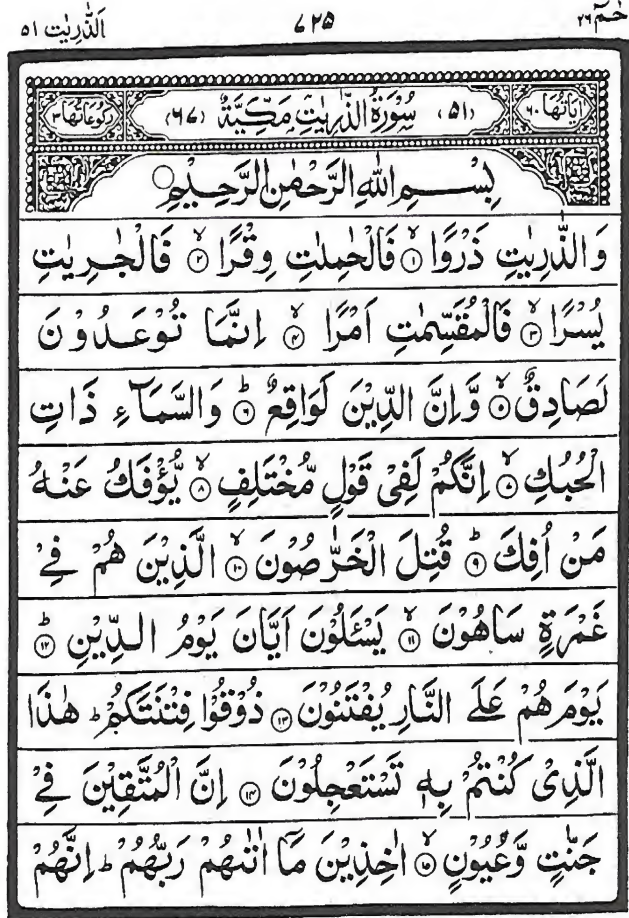 حٰمٓ ٢٦ ٧٢٥ الذّٰرِيٰت ٥١
اٰيَاتُهَا ٦٠ (٥١) سُوْرَةُ الذّٰرِيٰتِ مَكِّيَّةٌ (٦٧) رُكُوْعَاتُهَا ٣
بِسْمِ اللهِ الرَّحْمٰنِ الرَّحِيْمِ
وَالذّٰرِيٰتِ ذَرْوًا ۙ﴿١﴾ فَالْحٰمِلٰتِ وِقْرًا ۙ﴿٢﴾ فَالْجٰرِيٰتِ
يُسْرًا ۙ﴿٣﴾ فَالْمُقَسِّمٰتِ اَمْرًا ۙ﴿٤﴾ اِنَّمَا تُوْعَدُوْنَ
لَصَادِقٌ ۙ﴿٥﴾ وَّاِنَّ الدِّيْنَ لَوَاقِعٌ ؕ﴿٦﴾ وَالسَّمَآءِ ذَاتِ
الْحُبُكِ ۙ﴿٧﴾ اِنَّكُمْ لَفِيْ قَوْلٍ مُّخْتَلِفٍ ۙ﴿٨﴾ يُّؤْفَكُ عَنْهُ
مَنْ اُفِكَ ؕ﴿٩﴾ قُتِلَ الْخَرّٰصُوْنَ ۙ﴿١٠﴾ الَّذِيْنَ هُمْ فِيْ
غَمْرَةٍ سَاهُوْنَ ۙ﴿١١﴾ يَسْـَٔلُوْنَ اَيَّانَ يَوْمُ الدِّيْنِ ؕ﴿١٢﴾
يَوْمَ هُمْ عَلَى النَّارِ يُفْتَنُوْنَ ﴿١٣﴾ ذُوْقُوْا فِتْنَتَكُمْ ؕ هٰذَا
الَّذِيْ كُنْتُمْ بِهٖ تَسْتَعْجِلُوْنَ ﴿١٤﴾ اِنَّ الْمُتَّقِيْنَ فِيْ
جَنّٰتٍ وَّعُيُوْنٍ ۙ﴿١٥﴾ اٰخِذِيْنَ مَاۤ اٰتٰىهُمْ رَبُّهُمْ ؕ اِنَّهُمْ